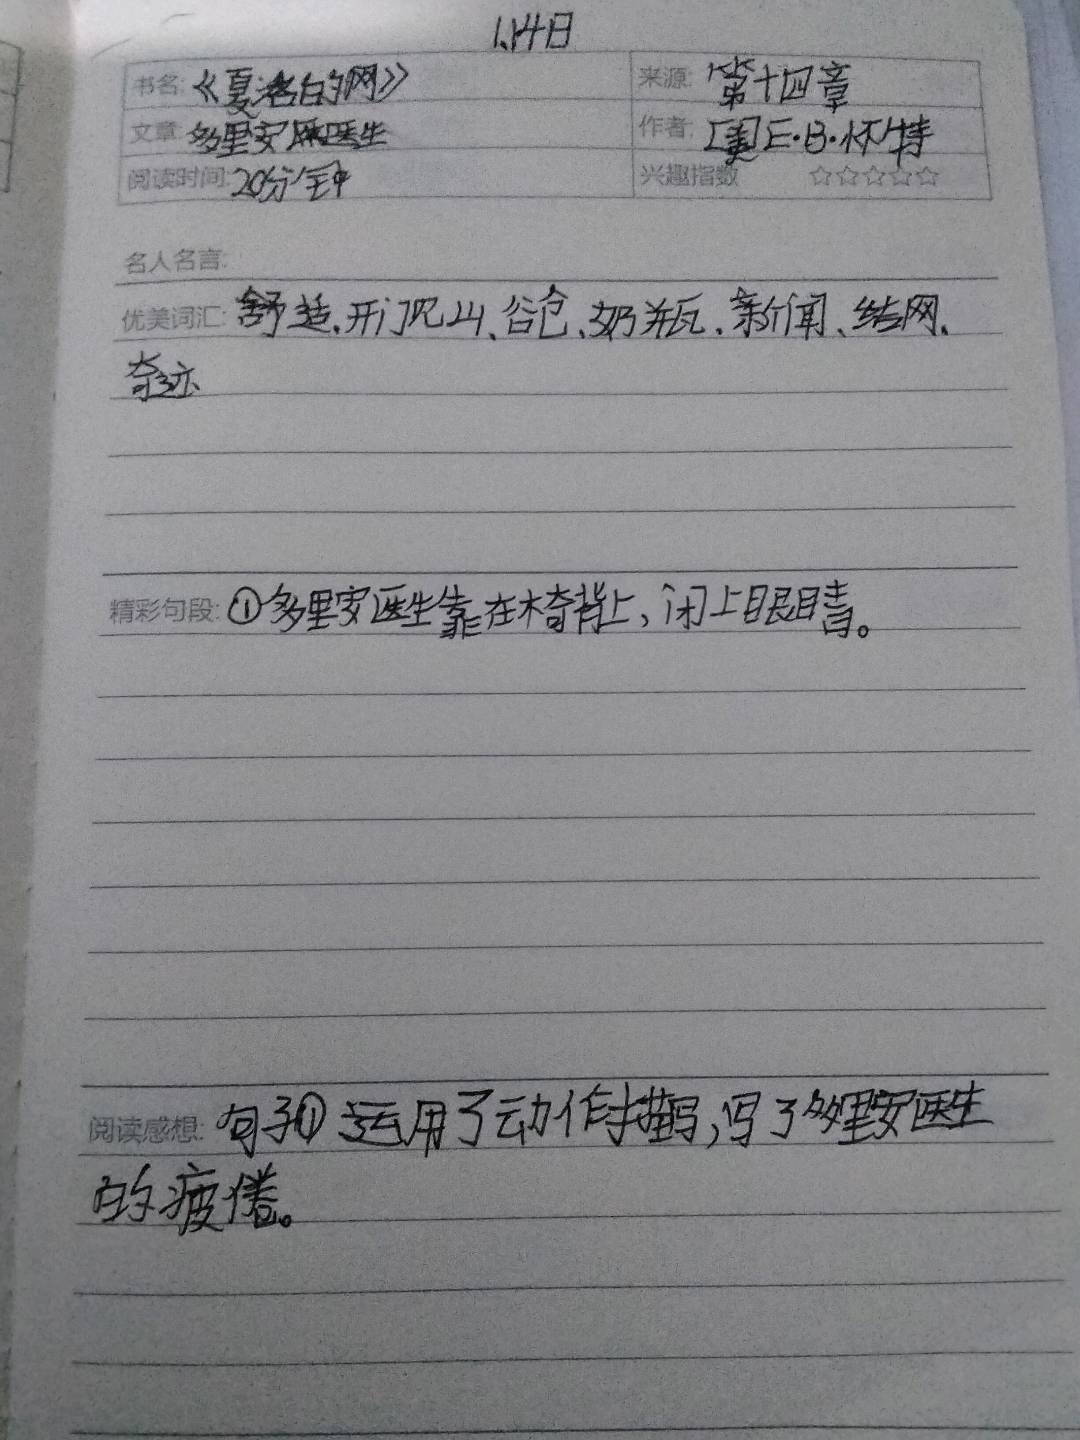 1.14日
书名:《夏洛的网》 来源: 第十四章
文章: 多里安医生 作者: [美]E·B·怀特
阅读时间: 20分钟 兴趣指数 ☆☆☆☆☆
名人名言:
优美词汇: 舒适、开门见山、谷仓、奶瓶、新闻、结网、
奇迹
精彩句段: ①多里安医生靠在椅背上,闭上眼睛。
阅读感想: 句子①运用了动作描写,写了多里安医生
的疲倦。